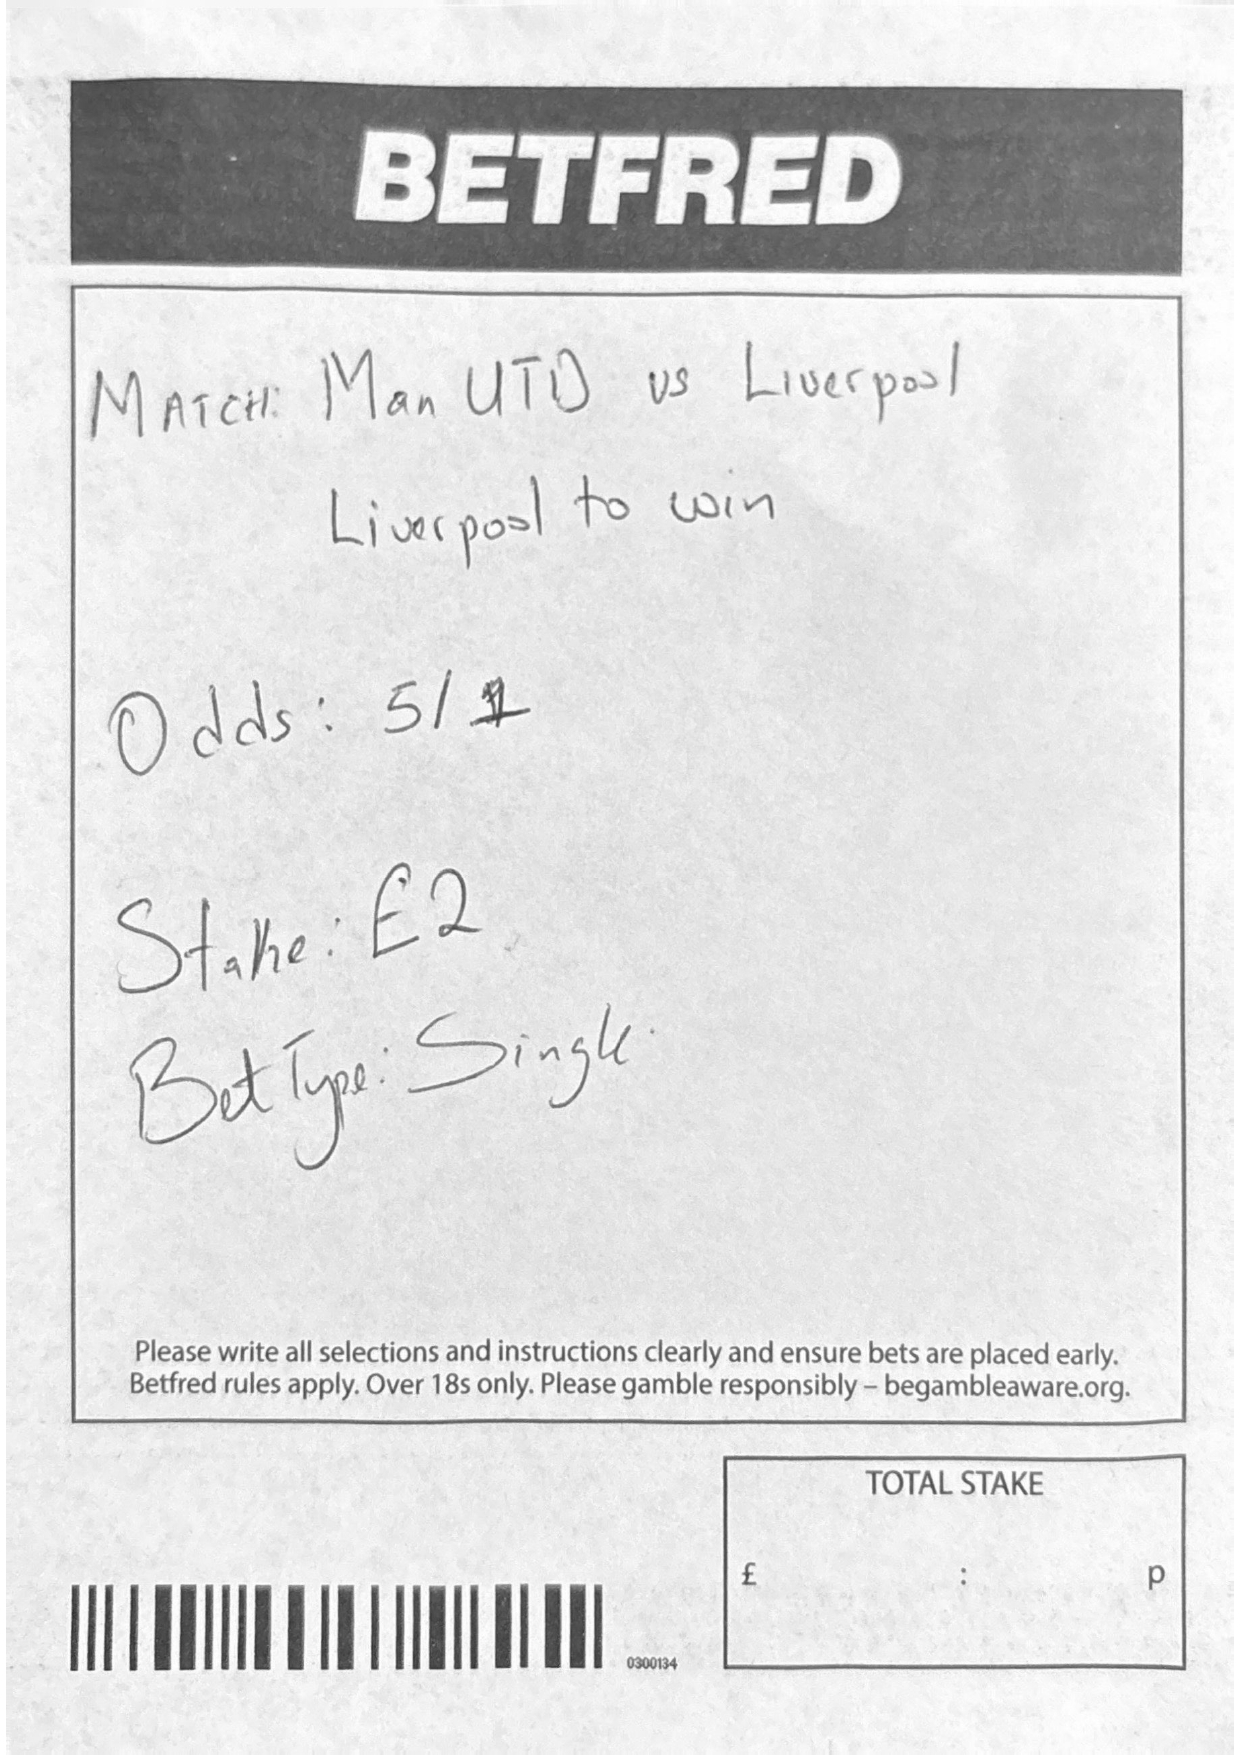 BETFRED
MATCH: Man UTD vs Liverpool
Liverpool to win
Odds: 5/1
Stake: £2
Bet Type: Single.
Please write all selections and instructions clearly and ensure bets are placed early.
Betfred rules apply. Over 18s only. Please gamble responsibly – begambleaware.org.
TOTAL STAKE
£ : p
0300134